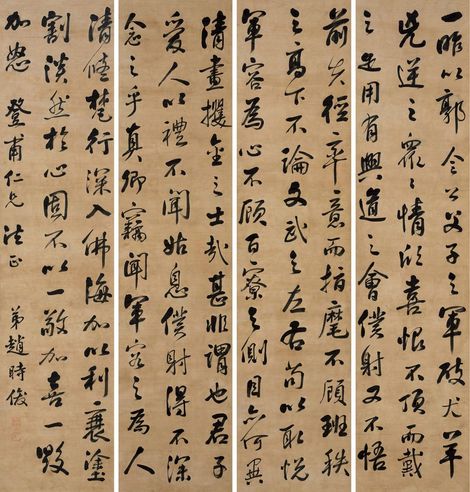 一昨以郭令公父子之軍破犬羊
兇逆之眾之情欣喜恨不頂而戴
之是用有興道之會僕射又不悟
前失徑率意而指麾不顧班秩
之高下不論文武之左右苟以取悅
軍容為心不顧百寮之側目亦何異
清晝攫金之士哉甚非謂也君子
愛人以禮不聞姑息僕射得不深
念之乎真卿竊聞軍容之為人
清修梵行深入佛海加以利衰塗
割淡然於心固不以一敬加喜一毀
加怒 登甫仁兄法正 弟趙時俊